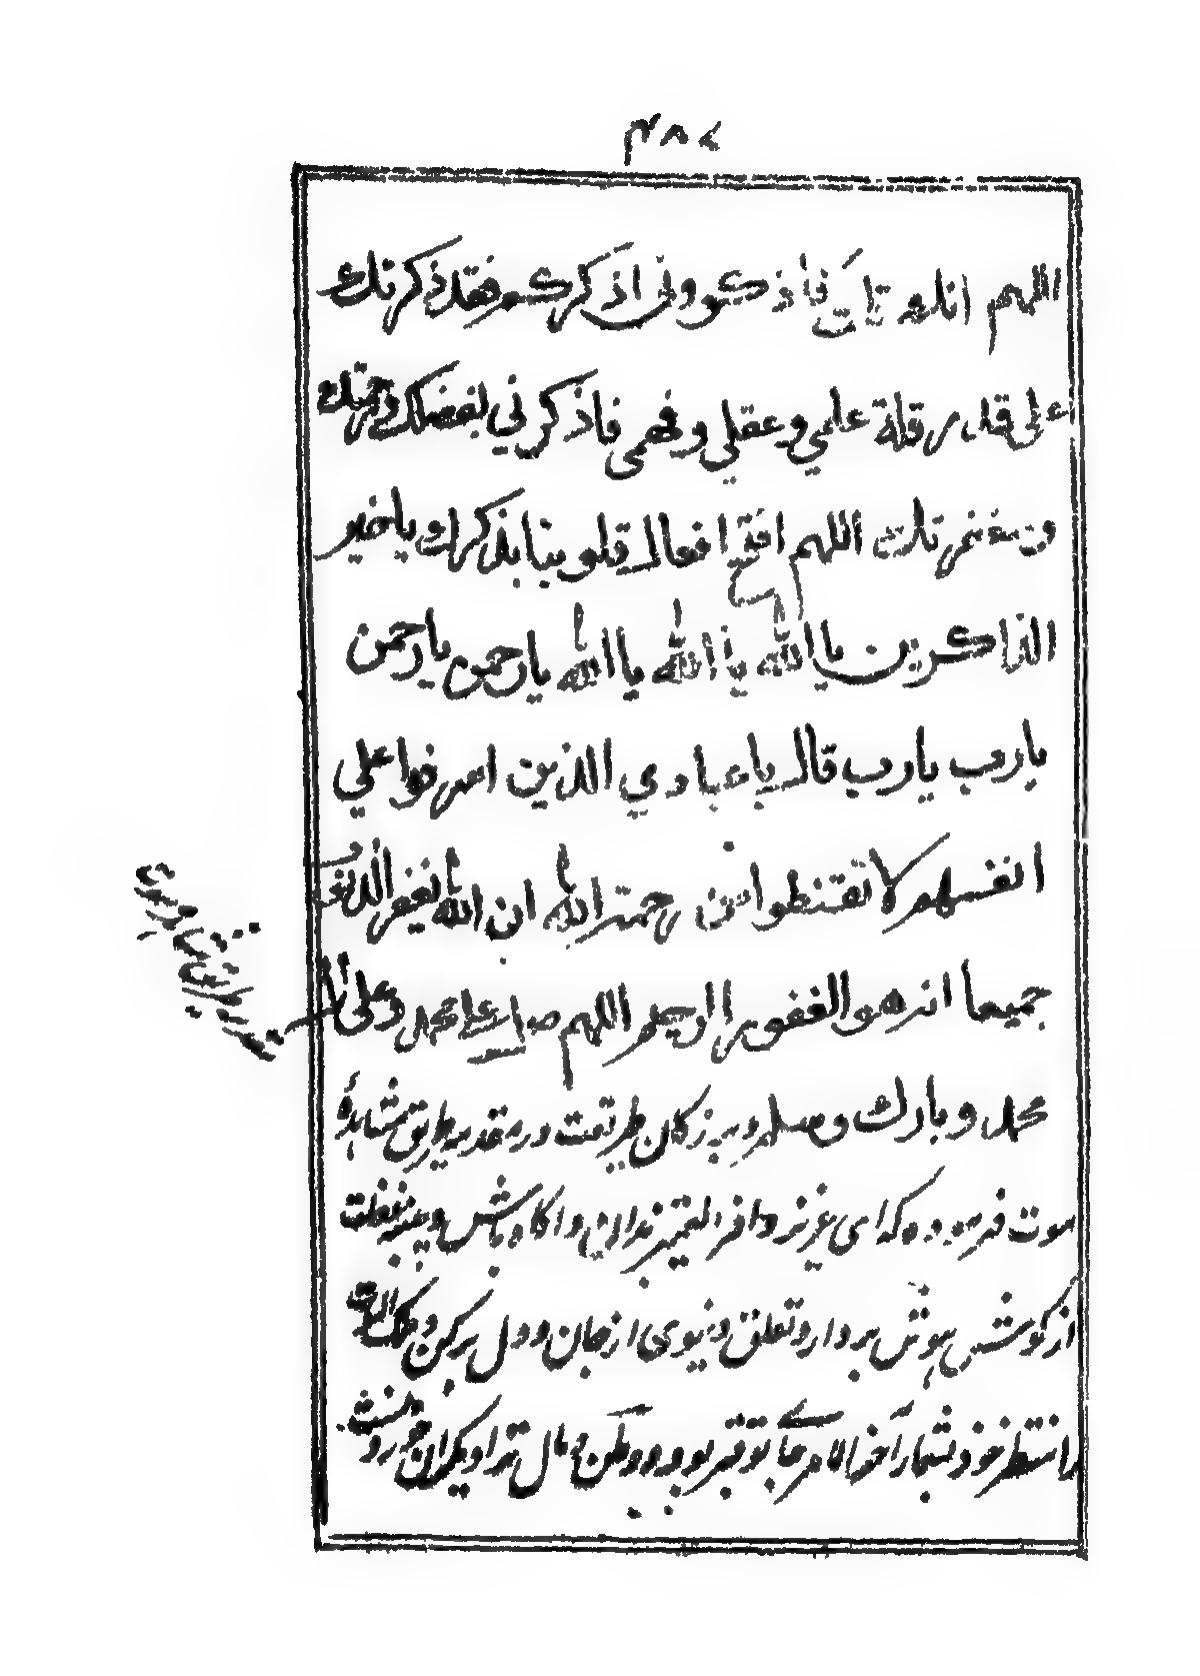 ۴۸۷
اللهم انك قلت فاذكروني اذكركم فقد ذكرتك
على قدر قلة علمي وعقلي وفهمي فاذكرني بفضلك ورحمتك
ومغفرتك اللهم افتح اقفال قلوبنا بذكرك يا خير
الذاكرين يا الله يا الله يا الله يا رحمن يا رحمن
يا رب يا رب قال يا عبادي الذين اسرفوا على
انفسهم لا تقنطوا من رحمة الله ان الله يغفر الذنوب
جميعا انه هو الغفور الرحيم اللهم صل على محمد وعلى ال
محمد وبارك وسلم وبزركان طريقت در مقدمه طريق مشاهدۀ
موت فرموده كه اى عزيز وافر التميز بدان واكاه باش وپنبه غفلت
از گوش هوش بردار وتعلق دنيوى از جان ودل بركن وملك الموت
را منتظر خود بشمار آخر الامر جاى تو قبر بود ووطن ومال ترا ديكران خورند
در طريق مشاهده موت